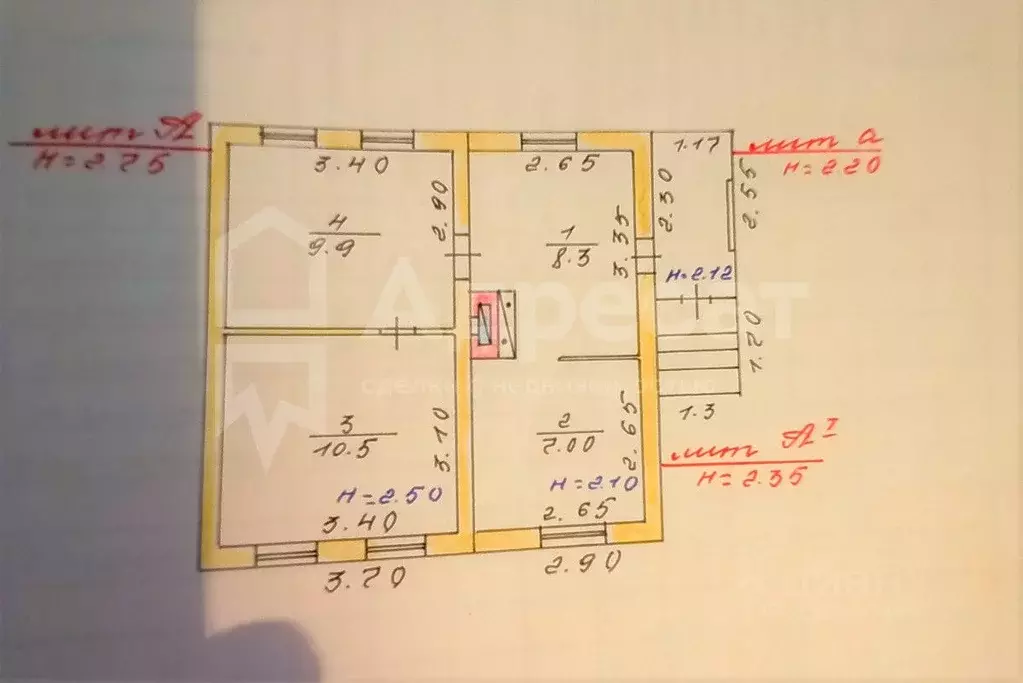 лит А
H=2.75
3.40
2.90
4
9.9
2.65
1
8.3
3.35
1.17
2.30
2.55
лит а
H=2.20
H=2.12
1.20
1.3
Адресат
сделки с недвижимостью
3
10.5
3.10
H=2.50
3.40
3.70
2
7.00
2.65
H=2.10
2.65
2.90
лит А I
H=2.35